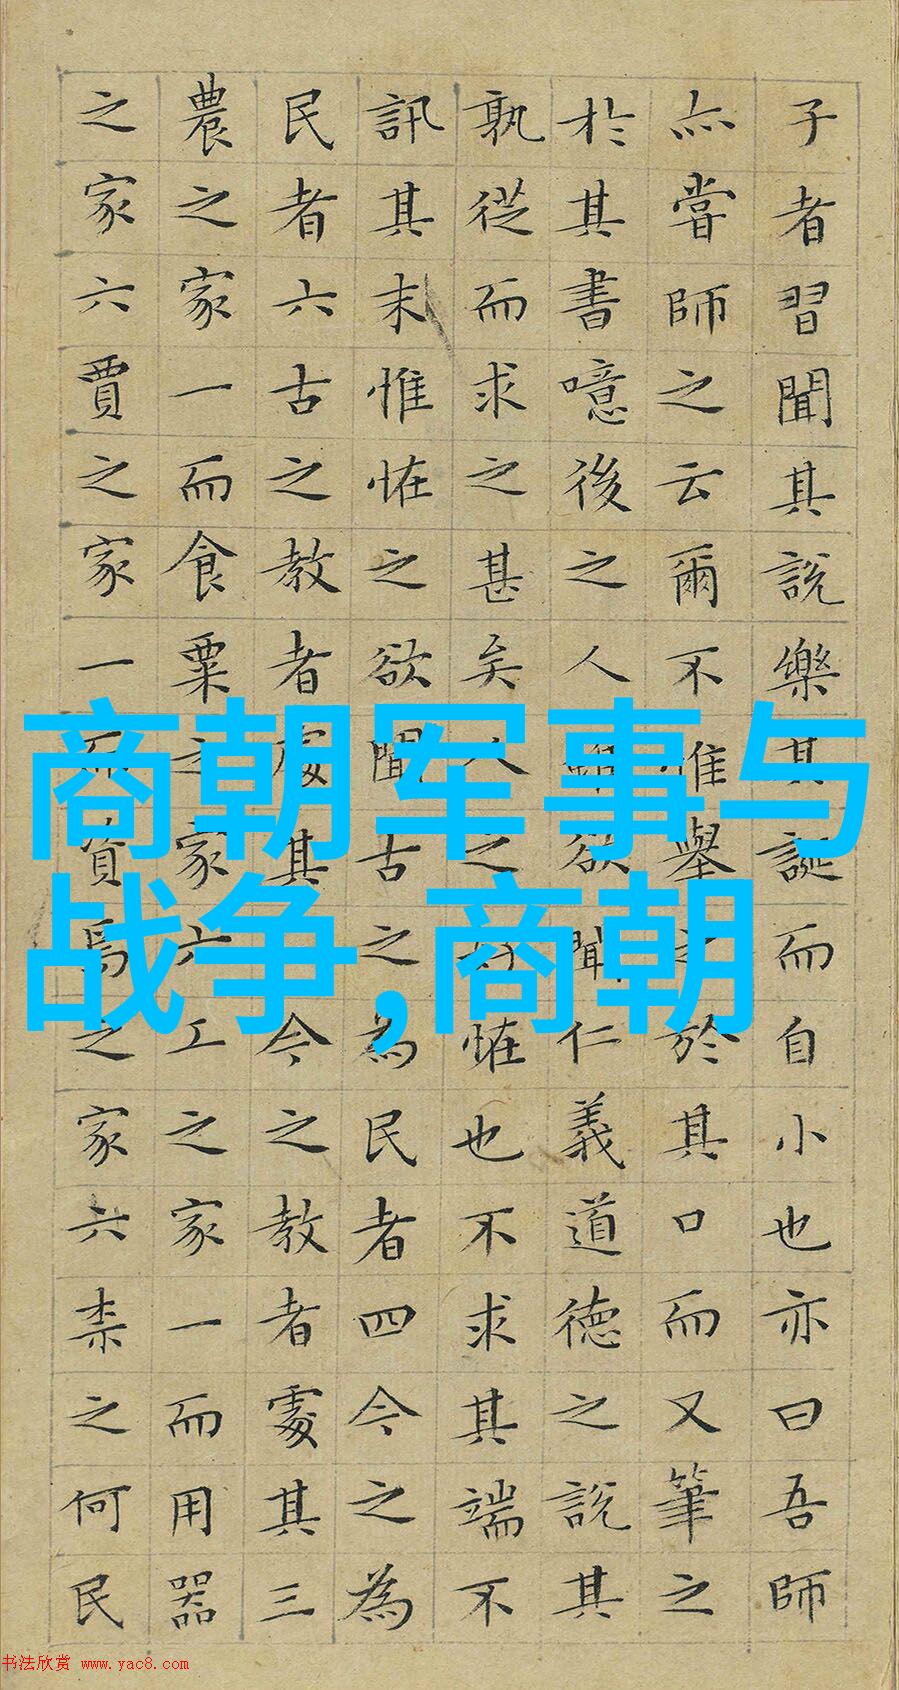 子者習聞其説樂其誕而自小也亦曰吾師
亦嘗師之云爾不惟舉之於其口而又筆之
於其書噫後之人雖欲聞仁義道德之説其
孰從而求之甚矣人之好恠也不求其端不
訊其末惟恠之欲聞古之為民者四今之為
民者六古之教者處其今之教者處其三
農之家一而食粟之家六工之家一而用器
之家六賈之家一而資焉之家六柰之何民
商朝军事与
战争,商朝
书法欣赏 www.yac8.com